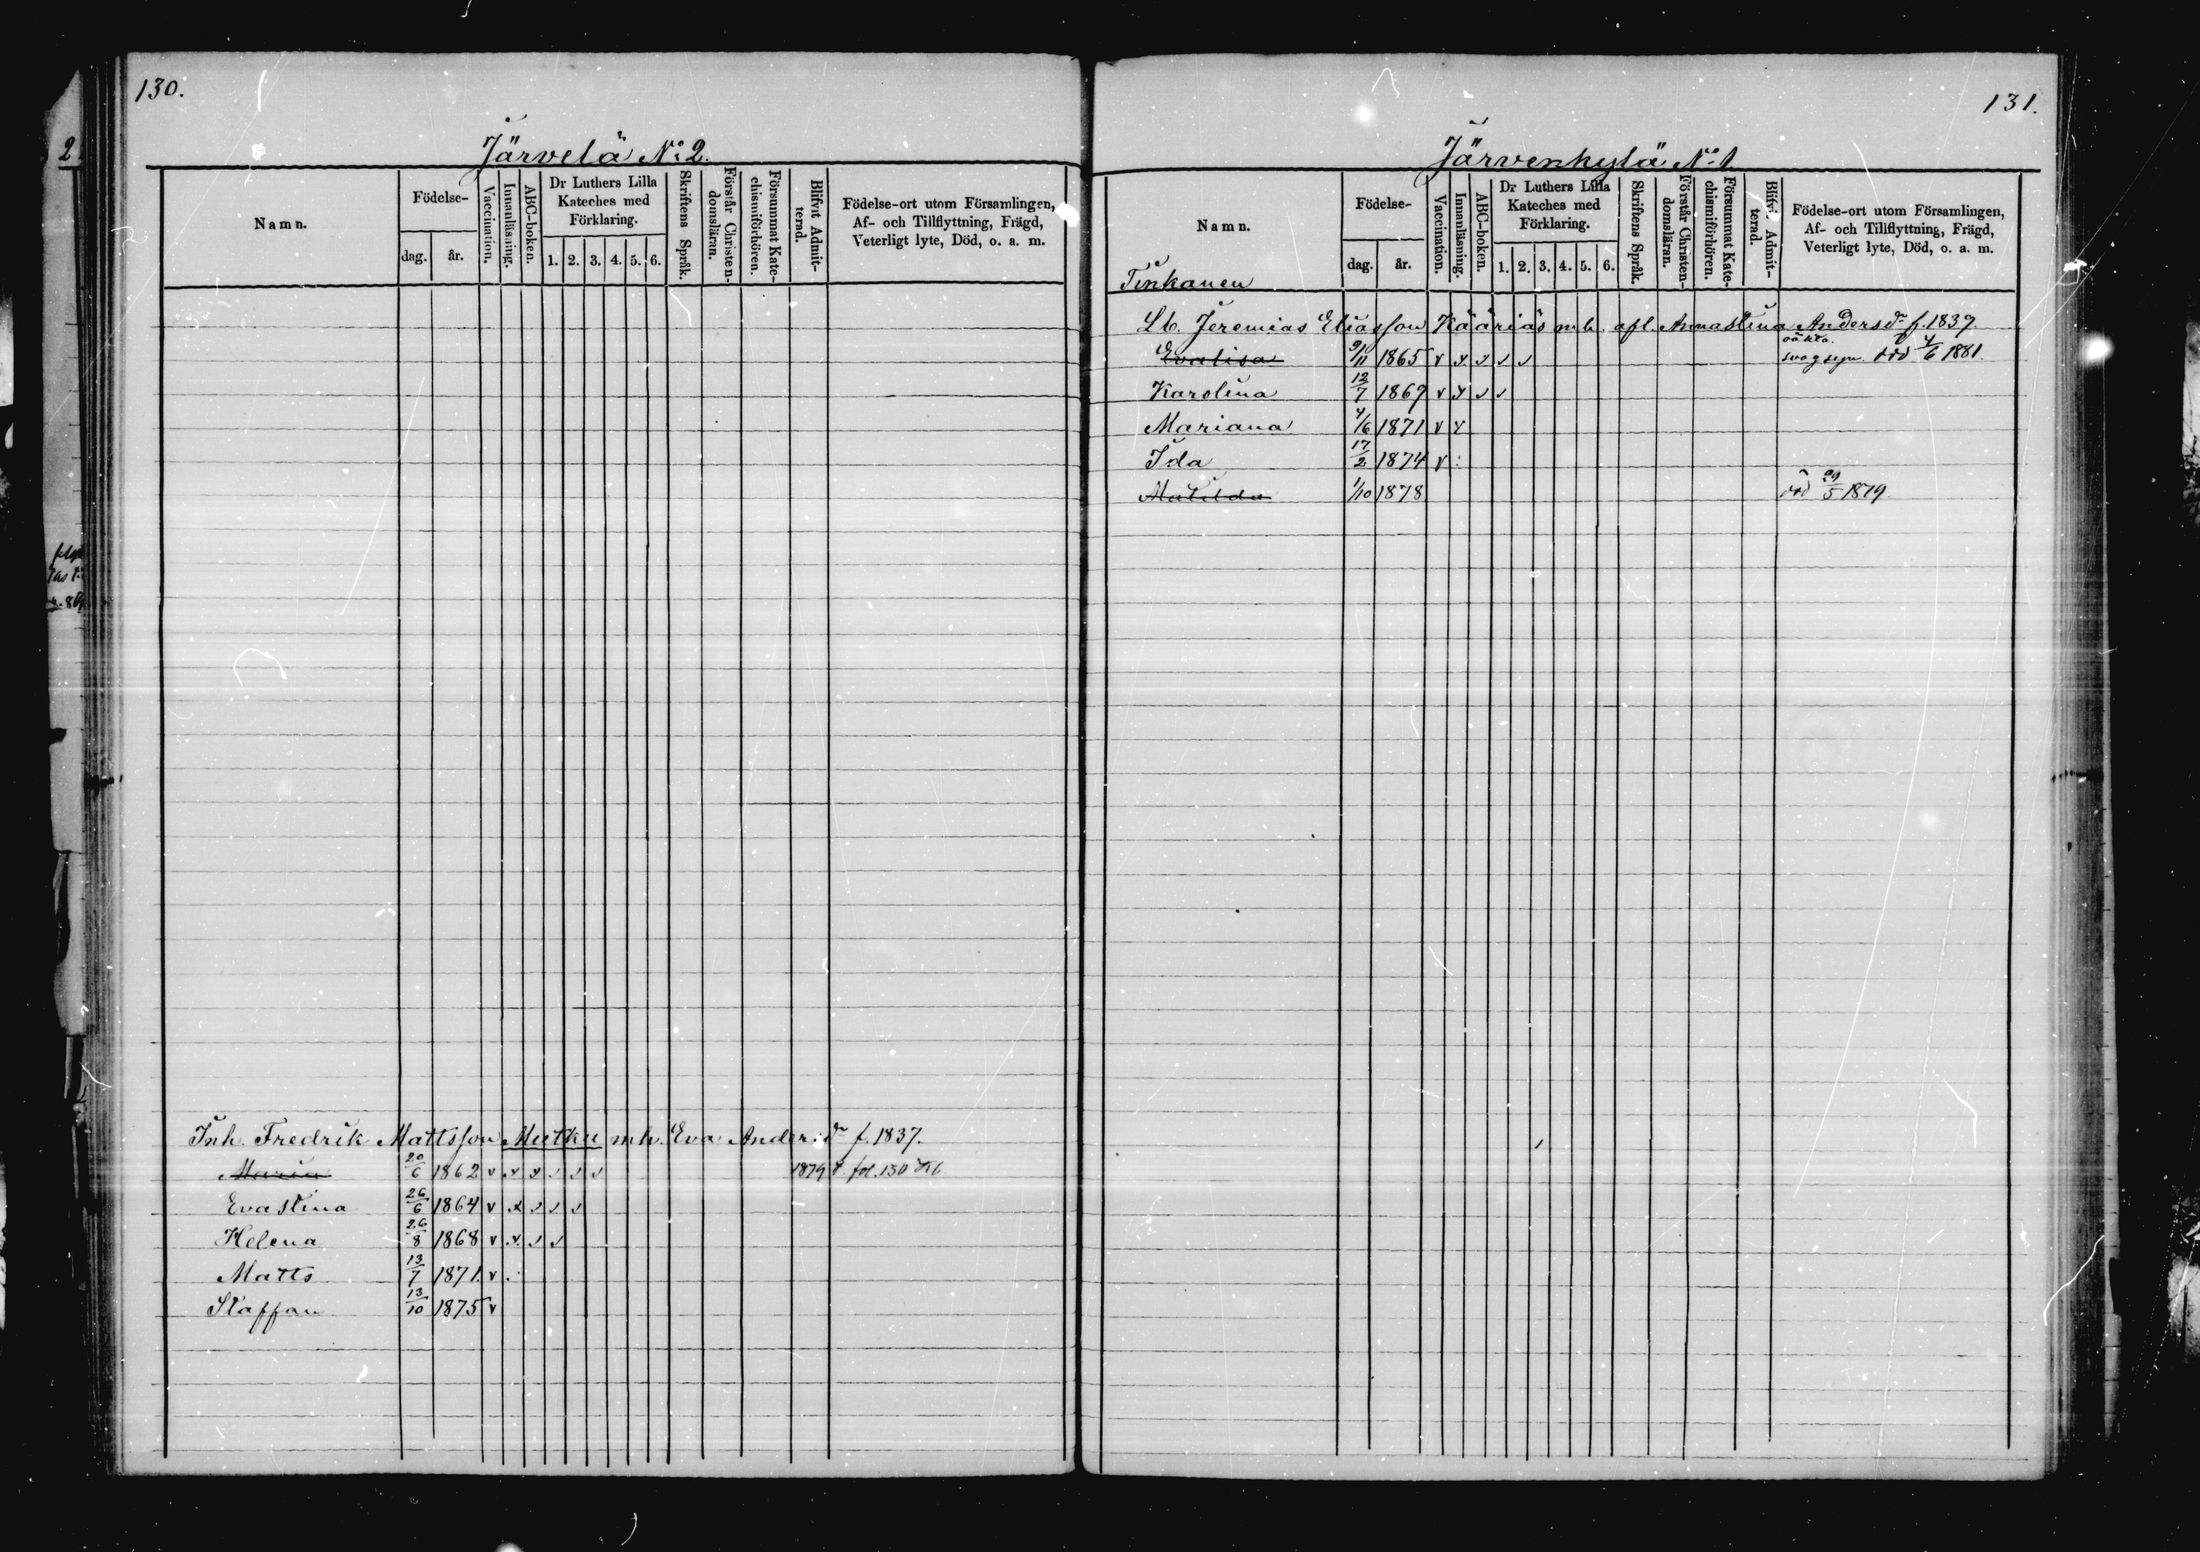 130.
Järvelä No 2.
Namn.
Födelse-
dag.
år.
Vaccination.
Innanläsning.
ABC-boken.
Dr Luthers Lilla
Kateches med
Förklaring.
1. 2. 3. 4. 5. 6.
Skriftens Språk.
Förstår Christen-
domsläran.
Försummat Kate-
chismiförhören.
Blifvit Admit-
terad.
Födelse-ort utom Församlingen,
Af- och Tillflyttning, Frägd,
Veterligt lyte, Död, o. a. m.
Inh. Fredrik Mattsson Mutku m.h. Eva Anders dr f. 1837.
Maria 20/6 1862 v x x v v v 1879 fol. 130
Evastina 26/6 1864 v x v v v
Helena 26/8 1868 v x v v
Matts 13/7 1871. v
Staffan 13/10 1875 v
131.
Järvenkylä No 1
Namn.
Födelse-
dag.
år.
Vaccination.
Innanläsning.
ABC-boken.
Dr Luthers Lilla
Kateches med
Förklaring.
1. 2. 3. 4. 5. 6.
Skriftens Språk.
Förstår Christen-
domsläran.
Försummat Kate-
chismiförhören.
Blifvit Admit-
terad.
Födelse-ort utom Församlingen,
Af- och Tillflyttning, Frägd,
Veterligt lyte, Död, o. a. m.
Tinkanen
Lb. Jeremias Eliasson Kääriäs m.h. afl. Annastina Anders dr f. 1837.
oäkta.
Evalisa 9/11 1865 v x x v v svagsyn. död 4/6 1881.
Karolina 12/7 1869 v x v v
Mariana 4/6 1871 v x
Ida 17/2 1874 v
Matilda 1/10 1878 död 29/5 1879